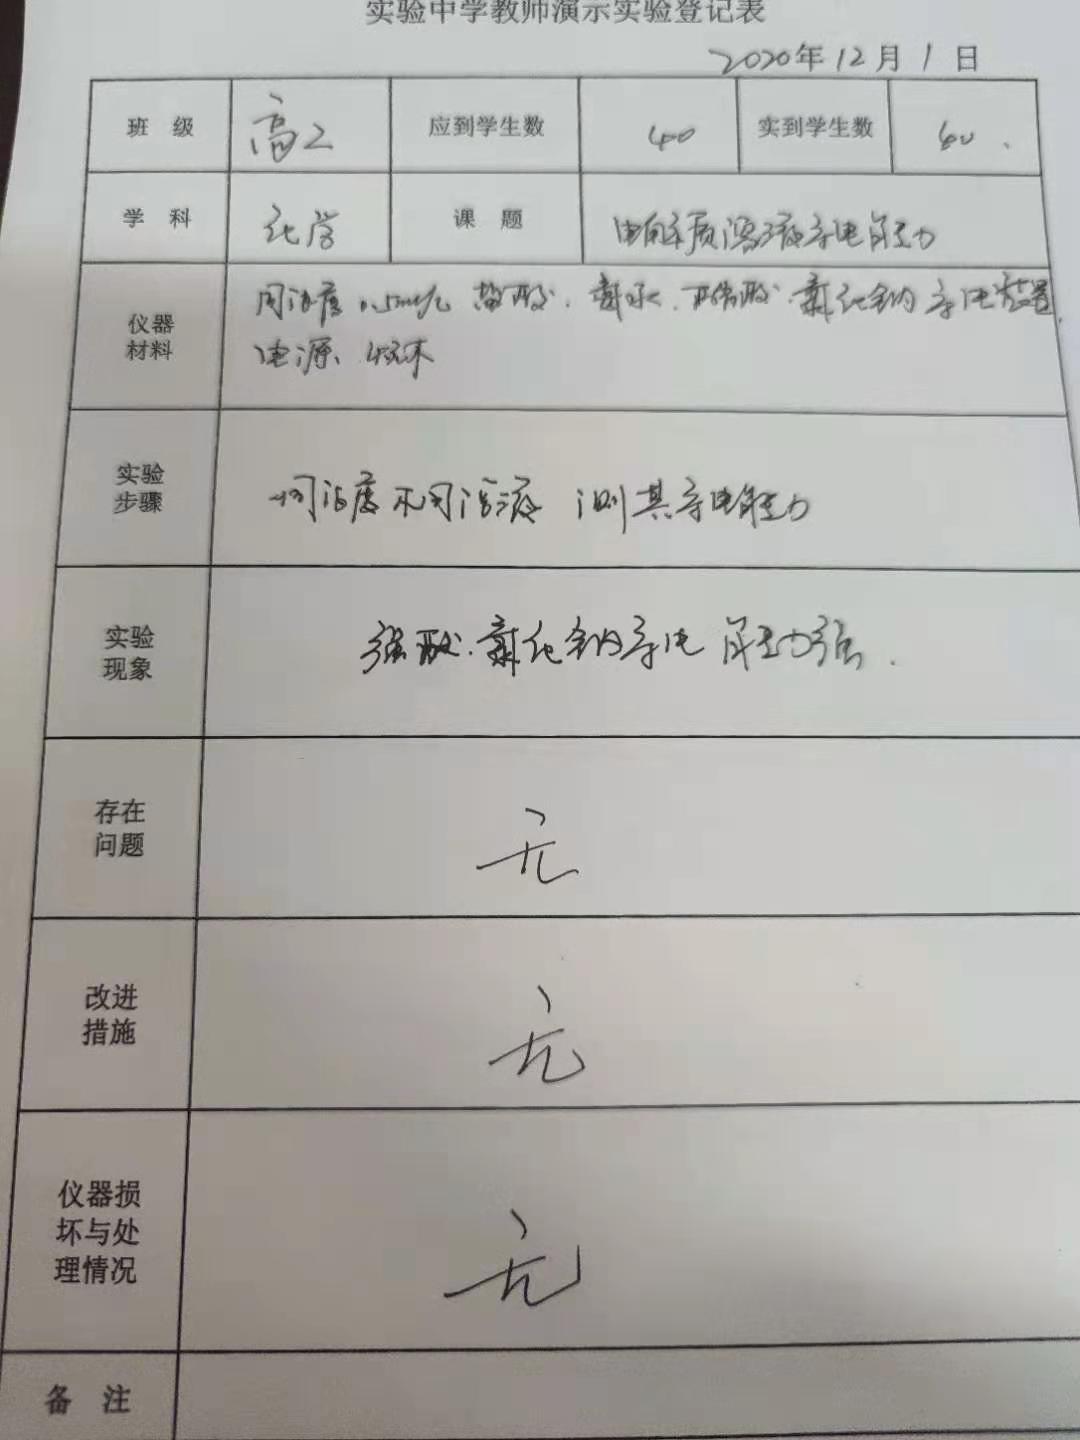 实验中学教师演示实验登记表
2020年12月1日
班 级 高二 应到学生数 40 实到学生数 40.
学 科 化学 课 题 电解质溶液导电能力
仪器材料 同浓度 0.5mol/L 盐酸. 氨水. 醋酸. 氯化钠 导电装置.
电源、
实验步骤 同浓度不同溶液 测其导电能力
实验现象 强酸.氯化钠导电能力强.
存在问题 无
改进措施 无
仪器损坏与处理情况 无
备 注